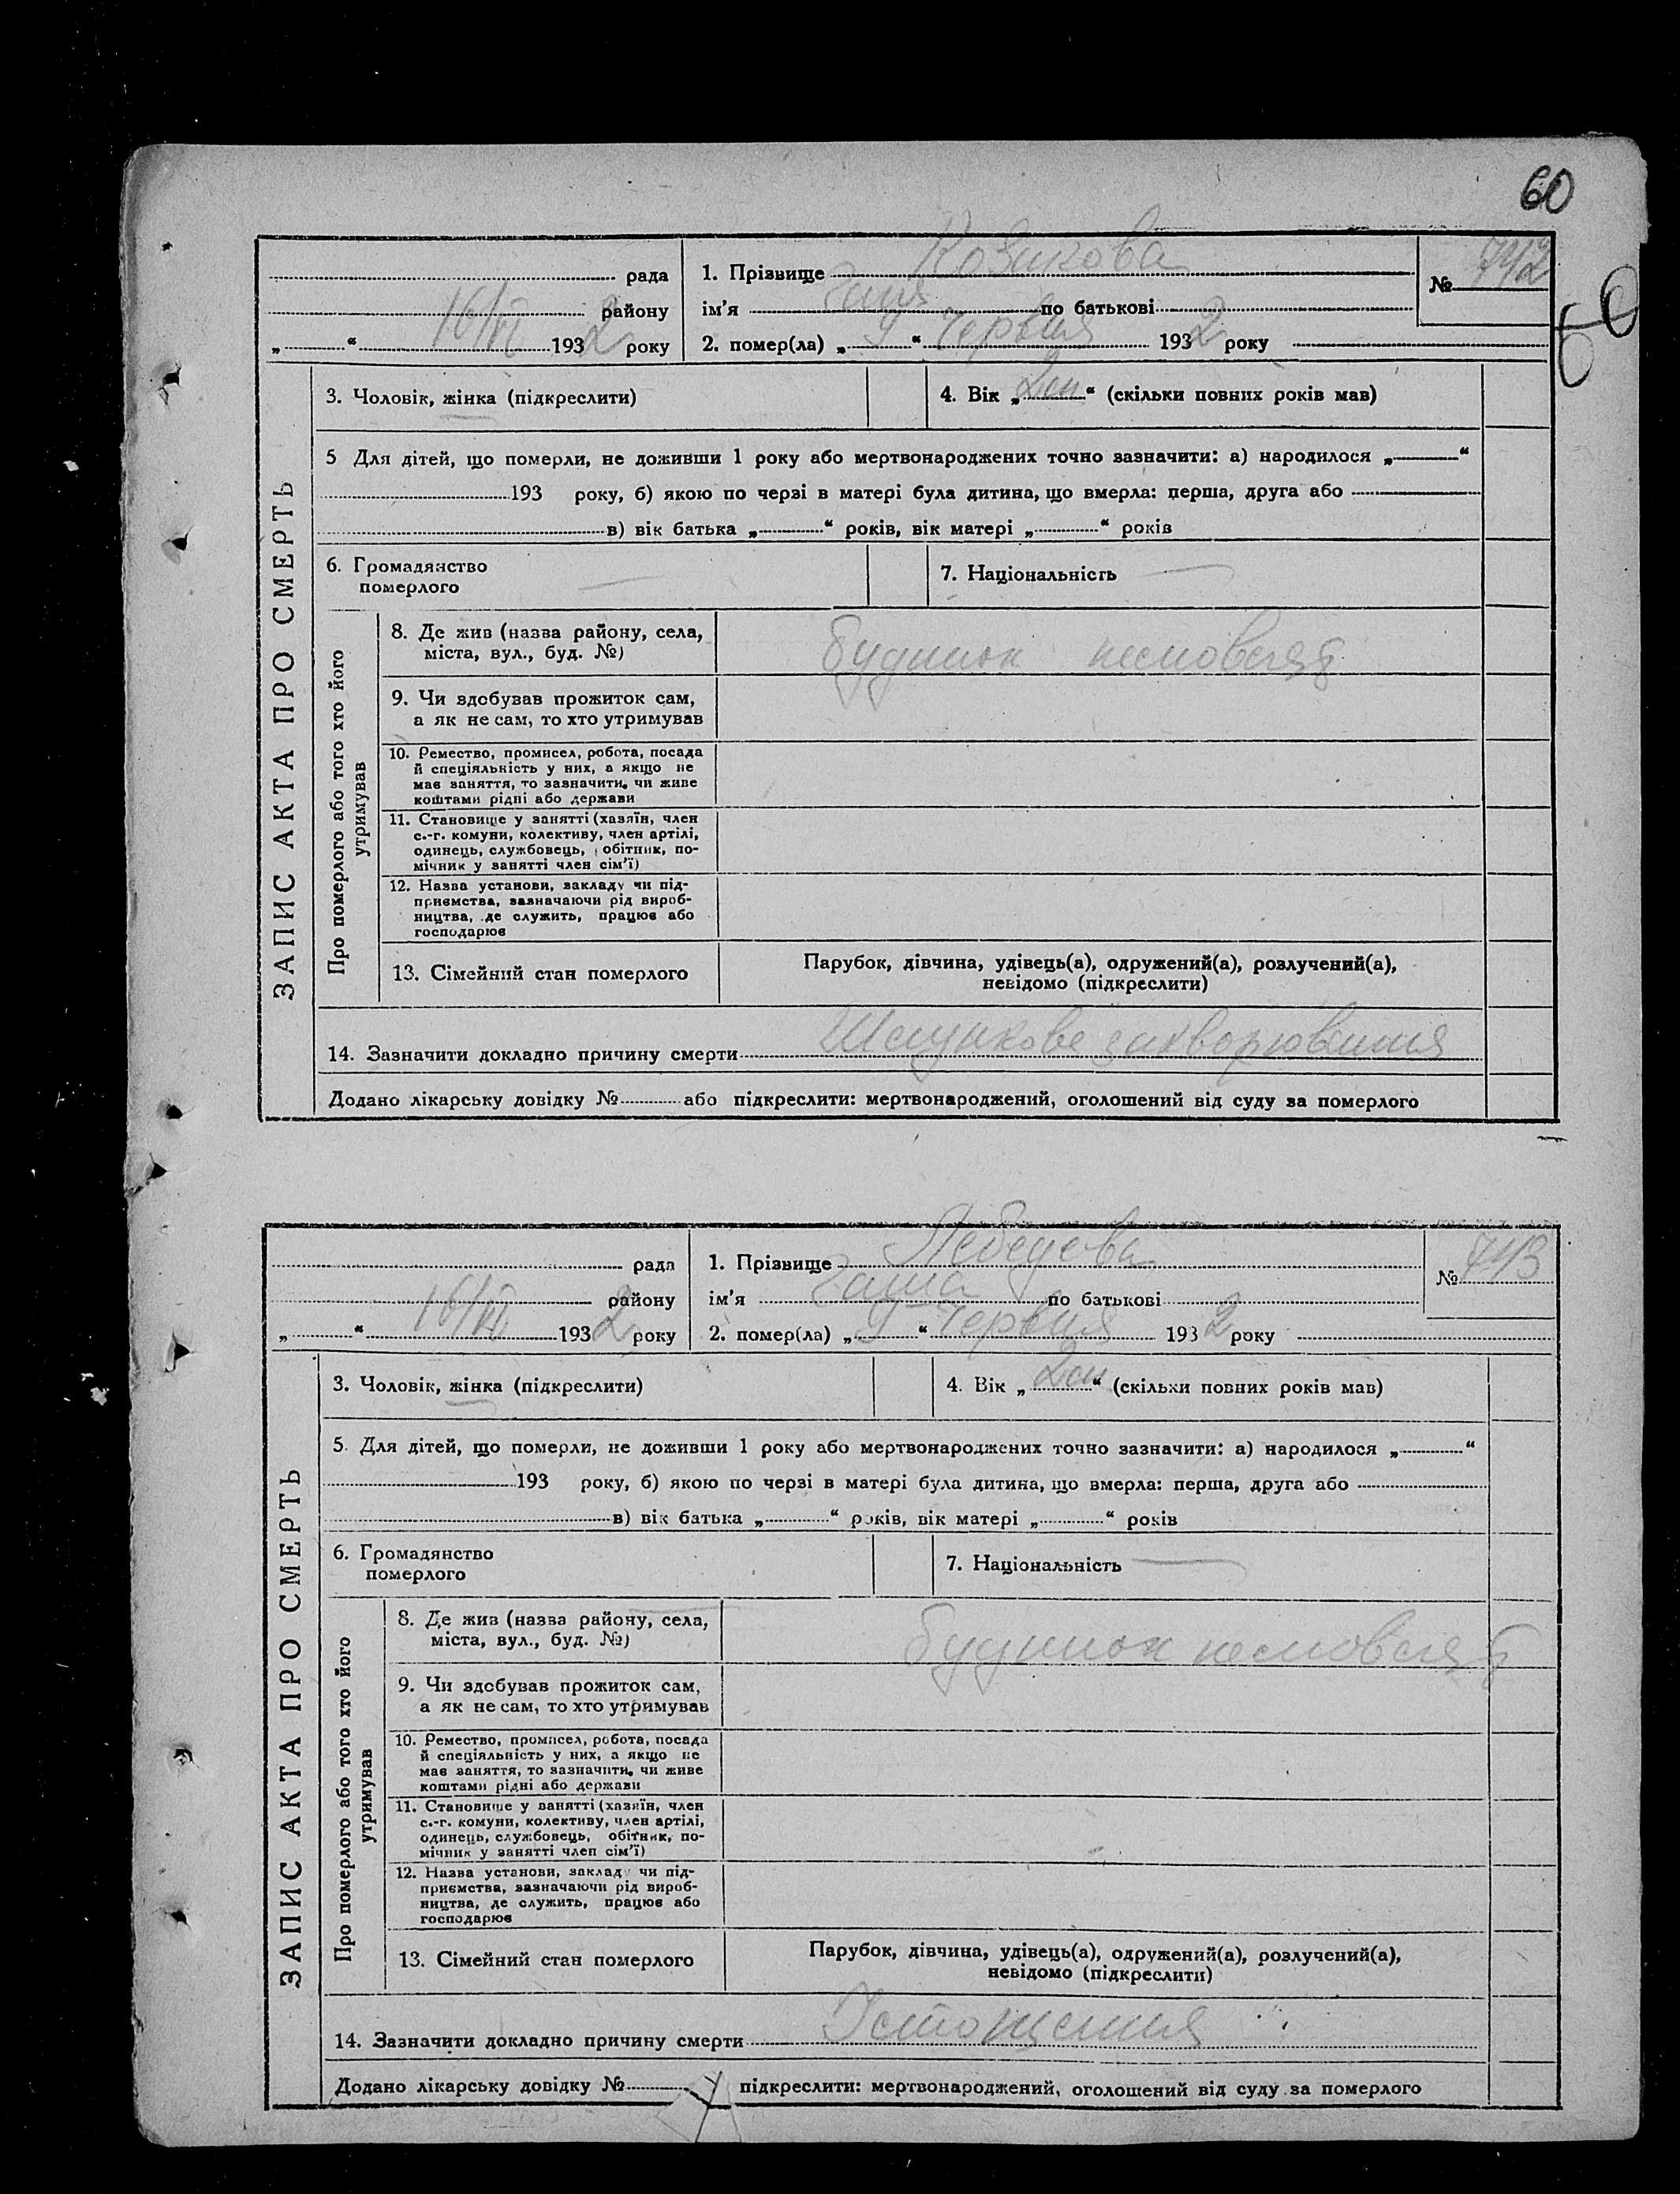 60
рада
району
16/VI 1932 року
1. Прізвище Козакова
ім'я по батькові
2. помер(ла) „ “ Червня 1932 року
№ 742
60
ЗАПИС АКТА ПРО СМЕРТЬ
3. Чоловік, жінка (підкреслити)
4. Вік „ “ (скільки повних років мав)
5 Для дітей, що померли, не доживши 1 року або мертвонароджених точно зазначити: а) народилося „ “
193 року, б) якою по черзі в матері була дитина, що вмерла: перша, друга або
в) вік батька „ “ років, вік матері „ “ років
6. Громадянство
померлого
7. Національність
Про померлого або того хто його
утримував
8. Де жив (назва району, села,
міста, вул., буд. №)
будинок немовлят
9. Чи здобував прожиток сам,
а як не сам, то хто утримував
10. Ремество, промисел, робота, посада
й спеціяльність у них, а якщо не
має заняття, то зазначити, чи живе
коштами рідні або держави
11. Становище у занятті (хазяїн, член
с.-г. комуни, колективу, член артілі,
одинець, службовець, обітник, по-
мічник у занятті член сім'ї)
12. Назва установи, закладу чи під-
приємства, зазначаючи рід вироб-
ництва, де служить, працює або
господарює
13. Сімейний стан померлого
Парубок, дівчина, удівець(а), одружений(а), розлучений(а),
невідомо (підкреслити)
14. Зазначити докладно причину смерти Шлункове захворювання
Додано лікарську довідку № або підкреслити: мертвонароджений, оголошений від суду за померлого
рада
району
„ “ 16/VI 1932 року
1. Прізвище Лебедева
ім'я по батькові
2. помер(ла) „ “ Червня 1932 року
№ 743
ЗАПИС АКТА ПРО СМЕРТЬ
3. Чоловік, жінка (підкреслити)
4. Вік „ “ (скільки повних років мав)
5. Для дітей, що померли, не доживши 1 року або мертвонароджених точно зазначити: а) народилося „ “
193 року, б) якою по черзі в матері була дитина, що вмерла: перша, друга або
в) вік батька „ “ років, вік матері „ “ років
6. Громадянство
померлого
7. Національність
Про померлого або того хто його
утримував
8. Де жив (назва району, села,
міста, вул., буд. №)
будинок немовлят
9. Чи здобував прожиток сам,
а як не сам, то хто утримував
10. Ремество, промисел, робота, посада
й спеціяльність у них, а якщо не
має заняття, то зазначити, чи живе
коштами рідні або держави
11. Становище у занятті (хазяїн, член
с.-г. комуни, колективу, член артілі,
одинець, службовець, обітник, по-
мічник у занятті член сім'ї)
12. Назва установи, закладу чи під-
приємства, зазначаючи рід вироб-
ництва, де служить, працює або
господарює
13. Сімейний стан померлого
Парубок, дівчина, удівець(а), одружений(а), розлучений(а),
невідомо (підкреслити)
14. Зазначити докладно причину смерти Істощення
Додано лікарську довідку № підкреслити: мертвонароджений, оголошений від суду за померлого